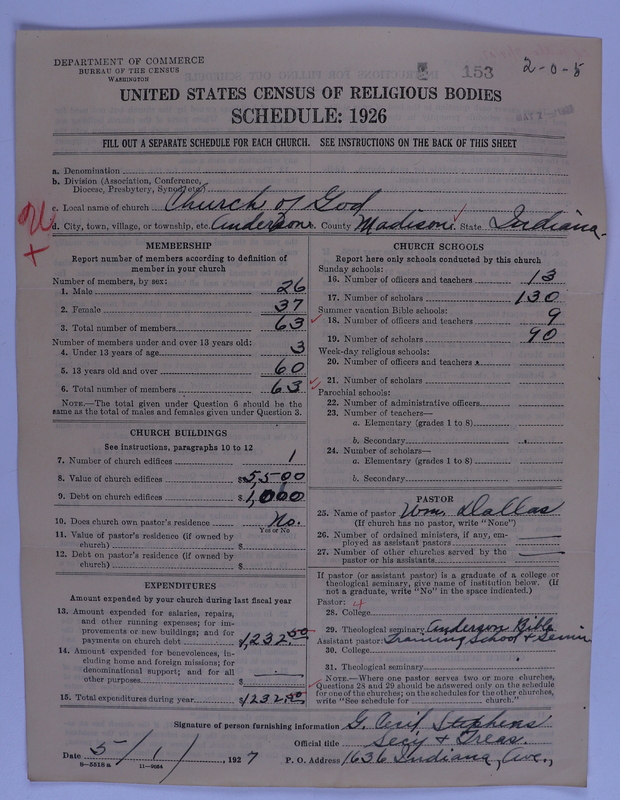 DEPARTMENT OF COMMERCE
BUREAU OF THE CENSUS
WASHINGTON
153
2-0-8
UNITED STATES CENSUS OF RELIGIOUS BODIES
SCHEDULE: 1926
FILL OUT A SEPARATE SCHEDULE FOR EACH CHURCH. SEE INSTRUCTIONS ON THE BACK OF THIS SHEET
a. Denomination
b. Division (Association, Conference,
Diocese, Presbytery, Synod, etc.)
c. Local name of church Church of God
d. City, town, village, or township, etc. Anderson County Madison State Indiana.
MEMBERSHIP
Report number of members according to definition of
member in your church
Number of members, by sex:
1. Male 26
2. Female 37
3. Total number of members 63
Number of members under and over 13 years old:
4. Under 13 years of age 3
5. 13 years old and over 60
6. Total number of members 63
NOTE.—The total given under Question 6 should be the
same as the total of males and females given under Question 3.
CHURCH BUILDINGS
See instructions, paragraphs 10 to 12
7. Number of church edifices 1
8. Value of church edifices $5,500
9. Debt on church edifices $1,000
10. Does church own pastor's residence No.
Yes or No
11. Value of pastor's residence (if owned by
church) $
12. Debt on pastor's residence (if owned by
church) $
EXPENDITURES
Amount expended by your church during last fiscal year
13. Amount expended for salaries, repairs,
and other running expenses; for im-
provements or new buildings; and for
payments on church debt $1,232.50
14. Amount expended for benevolences, in-
cluding home and foreign missions; for
denominational support; and for all
other purposes $
15. Total expenditures during year $1232.50
CHURCH SCHOOLS
Report here only schools conducted by this church
Sunday schools:
16. Number of officers and teachers 13
17. Number of scholars 130
Summer vacation Bible schools:
18. Number of officers and teachers 9
19. Number of scholars 90
Week-day religious schools:
20. Number of officers and teachers
21. Number of scholars
Parochial schools:
22. Number of administrative officers
23. Number of teachers—
a. Elementary (grades 1 to 8)
b. Secondary
24. Number of scholars—
a. Elementary (grades 1 to 8)
b. Secondary
PASTOR
25. Name of pastor Wm. Dallas
(If church has no pastor, write "None")
26. Number of ordained ministers, if any, em-
ployed as assistant pastors
27. Number of other churches served by the
pastor or his assistants
If pastor (or assistant pastor) is a graduate of a college or
theological seminary, give name of institution below. (If
not a graduate, write "No" in the space indicated.)
Pastor: 4
28. College
29. Theological seminary Anderson Bible
Assistant pastor: Training School & Semin
30. College
31. Theological seminary
NOTE.—Where one pastor serves two or more churches,
Questions 28 and 29 should be answered only on the schedule
for one of the churches; on the schedules for the other churches,
write "See schedule for church."
Signature of person furnishing information G. Stephens
Official title Secy & Treas.
Date 5/1/, 1927 P. O. Address 1636 Indiana, Ave.,
8-5518a 11-9084